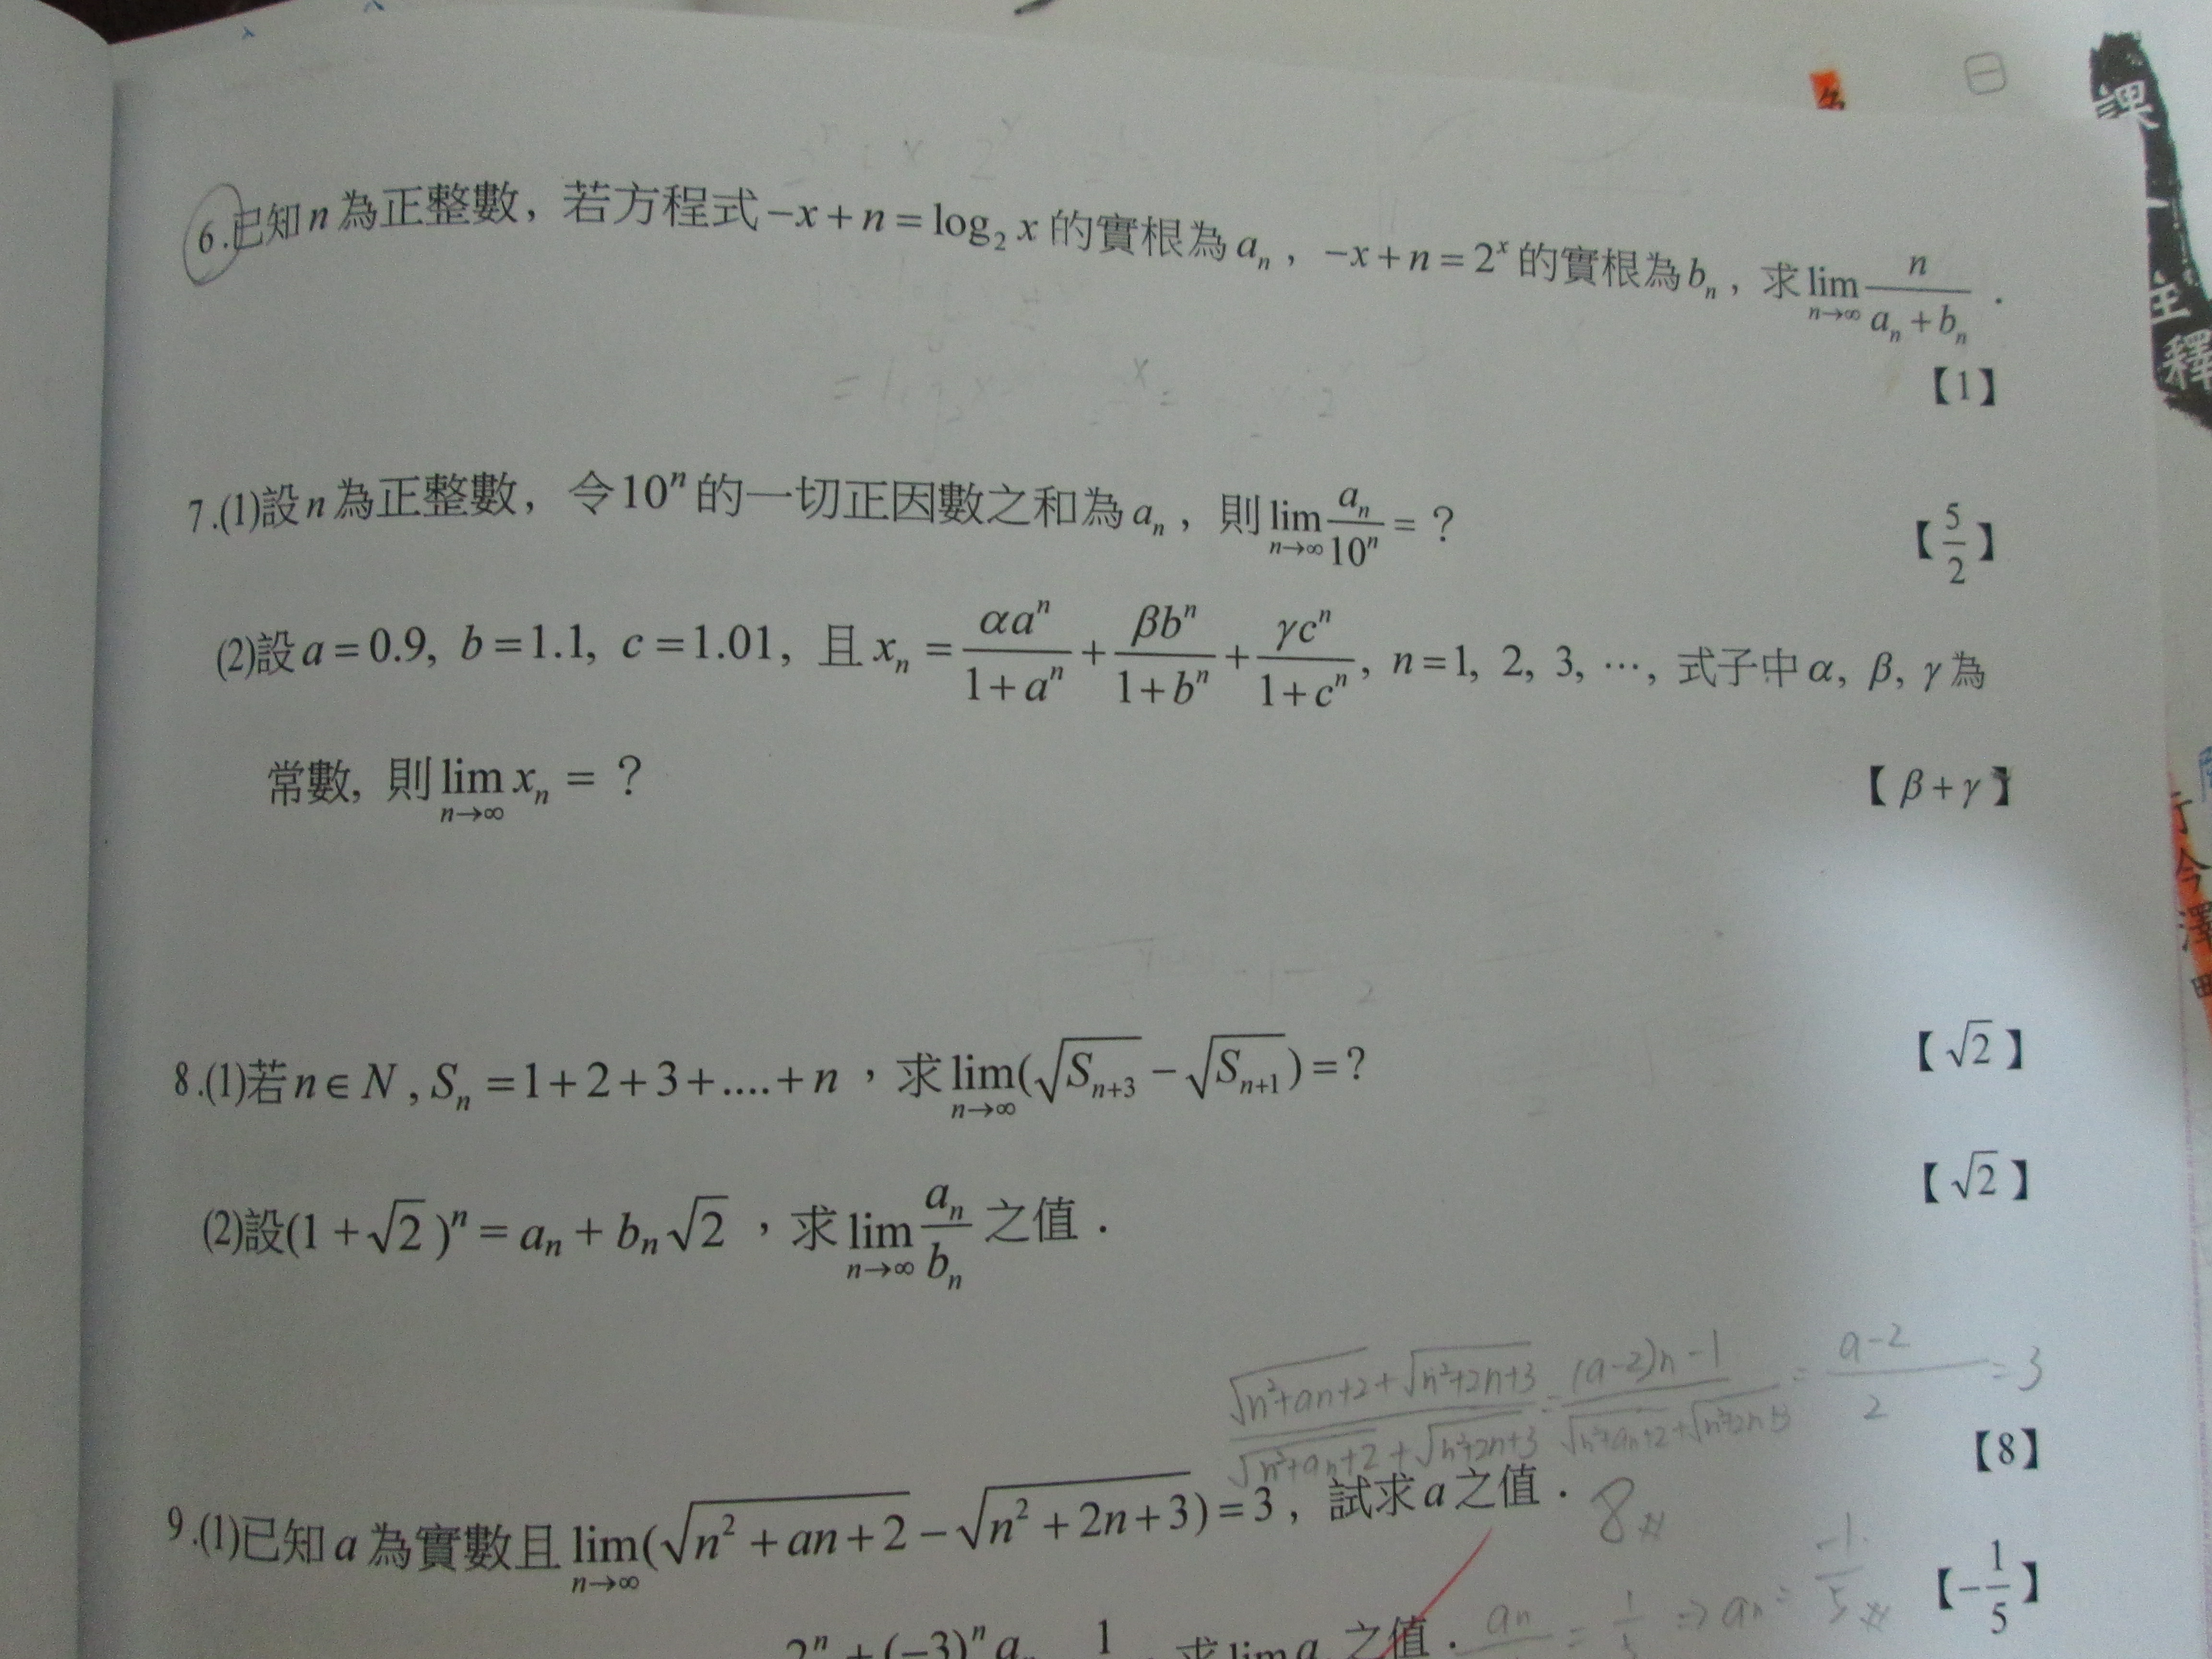 課
主
釋
6.已知n為正整數，若方程式−x+n=log₂x的實根為aₙ，−x+n=2ˣ的實根為bₙ，求lim_{n→∞} n/(aₙ+bₙ)．
【1】
7.(1)設n為正整數，令10ⁿ的一切正因數之和為aₙ，則lim_{n→∞} aₙ/10ⁿ=？
【5/2】
(2)設a=0.9, b=1.1, c=1.01，且xₙ=αaⁿ/(1+aⁿ)+βbⁿ/(1+bⁿ)+γcⁿ/(1+cⁿ), n=1, 2, 3, …, 式子中α, β, γ為
常數，則lim_{n→∞} xₙ=？
【β+γ】
8.(1)若n∈N, Sₙ=1+2+3+....+n，求lim_{n→∞}(√S_{n+3}−√S_{n+1})=?
【√2】
(2)設(1+√2)ⁿ=aₙ+bₙ√2，求lim_{n→∞} aₙ/bₙ之值．
【√2】
(√(n²+an+2)+√(n²+2n+3))/(√(n²+an+2)+√(n²+2n+3))=((a-2)n-1)/(√(n²+an+2)+√(n²+2n+3))=(a-2)/2=3
【8】
9.(1)已知a為實數且lim_{n→∞}(√(n²+an+2)−√(n²+2n+3))=3，試求a之值．
8#
2ⁿ+(−3)ⁿaₙ 1 求lim a 之值．
⇒an=-1/5#
【−1/5】
今
澤